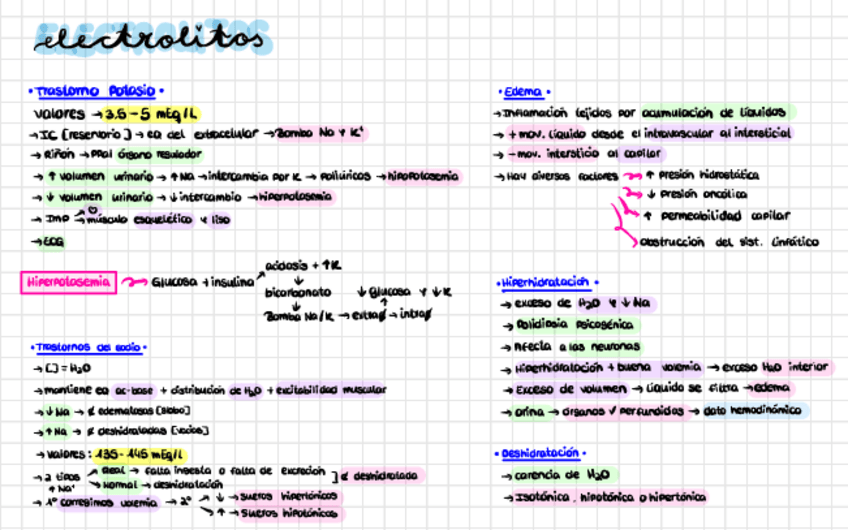 electrolitos
· Trastorno Potasio ·
valores → 3.5 - 5 mEq/L
→ IC [reservorio] → eq del extracelular → Bomba Na y K⁺
→ Riñón → ppal órgano regulador
→ ↑ volumen urinario → ↑ Na → intercambio por K → poliúricos → hipopotasemia
→ ↓ volumen urinario → ↓ intercambio → hiperpotasemia
→ Imp → músculo esquelético y liso
→ ECG
Hiperpotasemia → Glucosa + insulina
acidosis + ↑K
↓
bicarbonato
↓
Bomba Na/K → extra → intra
↓ Glucosa y ↓ K
· Trastornos del sodio ·
→ [ ] = H₂O
→ mantiene eq ac-base + distribución de H₂O + excitabilidad muscular
→ ↓ Na → ¢ edematosas [globo]
→ ↑ Na → ¢ deshidratadas [vacías]
→ valores: 135 - 145 mEq/L
→ 2 tipos ↑ Na⁺
Real → falta ingesta o falta de excreción
Normal → deshidratación
] ¢ deshidratada
→ 1º corregimos volemia → 2º
↓ → sueros hipertónicos
↑ → sueros hipotónicos
· Edema ·
→ Inflamación tejidos por acumulación de líquidos
→ + mov. líquido desde el intravascular al intersticial
→ - mov. intersticio al capilar
→ Hay diversos factores
↑ presión hidrostática
↓ presión oncótica
↑ permeabilidad capilar
obstrucción del sist. linfático
· Hiperhidratación ·
→ exceso de H₂O y ↓ Na
→ Polidipsia psicogénica
→ Afecta a las neuronas
→ Hiperhidratación + buena volemia → exceso H₂O interior
→ Exceso de volumen → líquido se filtra → edema
→ orina → órganos perfundidos → dato hemodinámico
· Deshidratación ·
→ carencia de H₂O
→ Isotónica, hipotónica o hipertónica